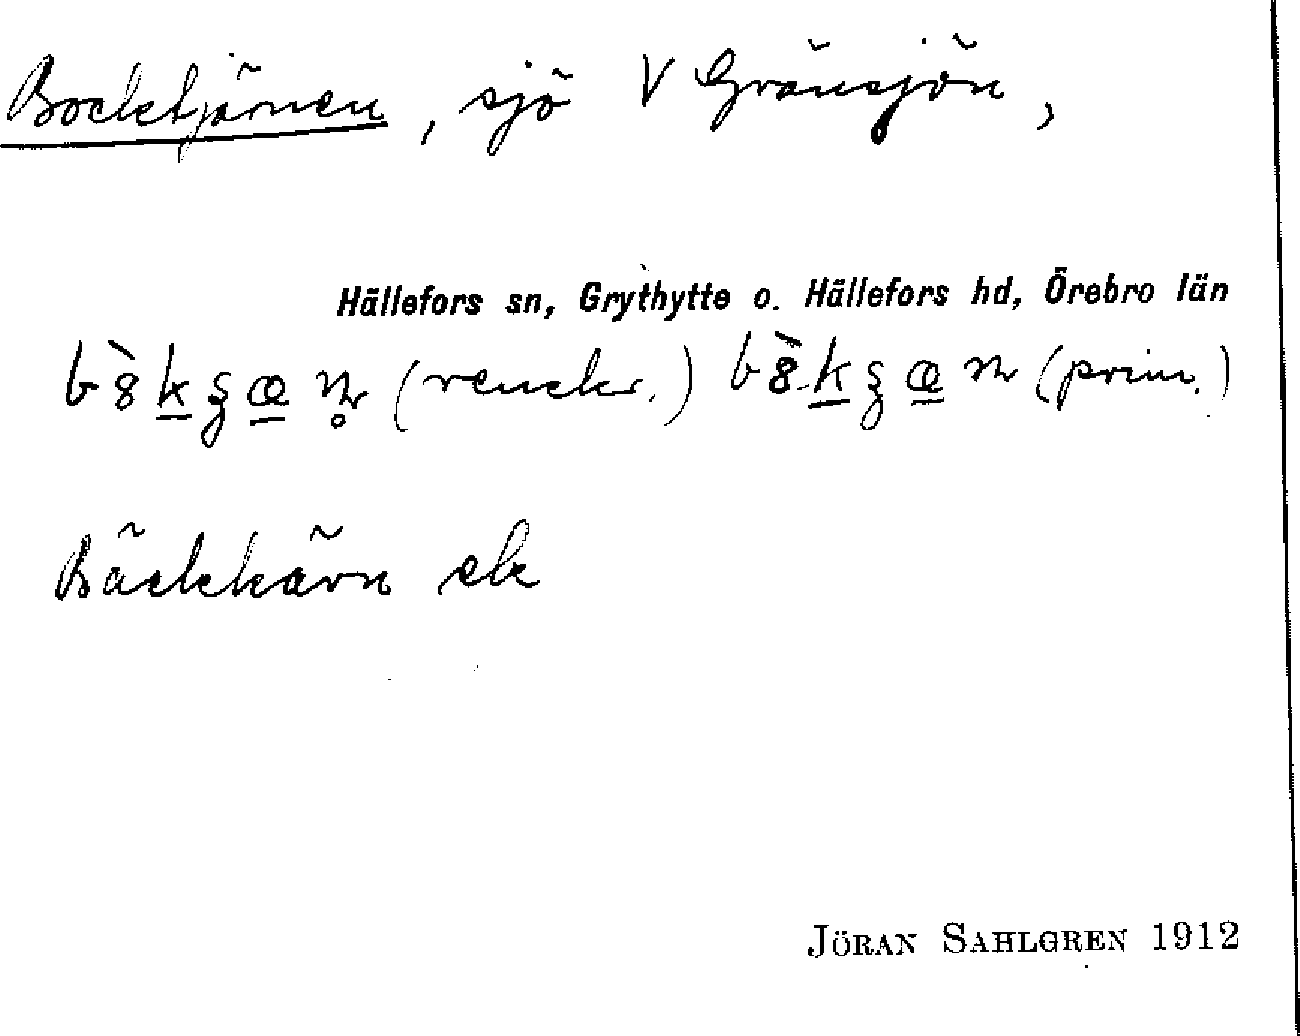 Bocktjärnen, sjö V Gränsjön,
Hällefors sn, Grythytte o. Hällefors hd, Örebro län
(renckr.) (prim.)
Bäckkärn ek
JÖRAN SAHLGREN 1912